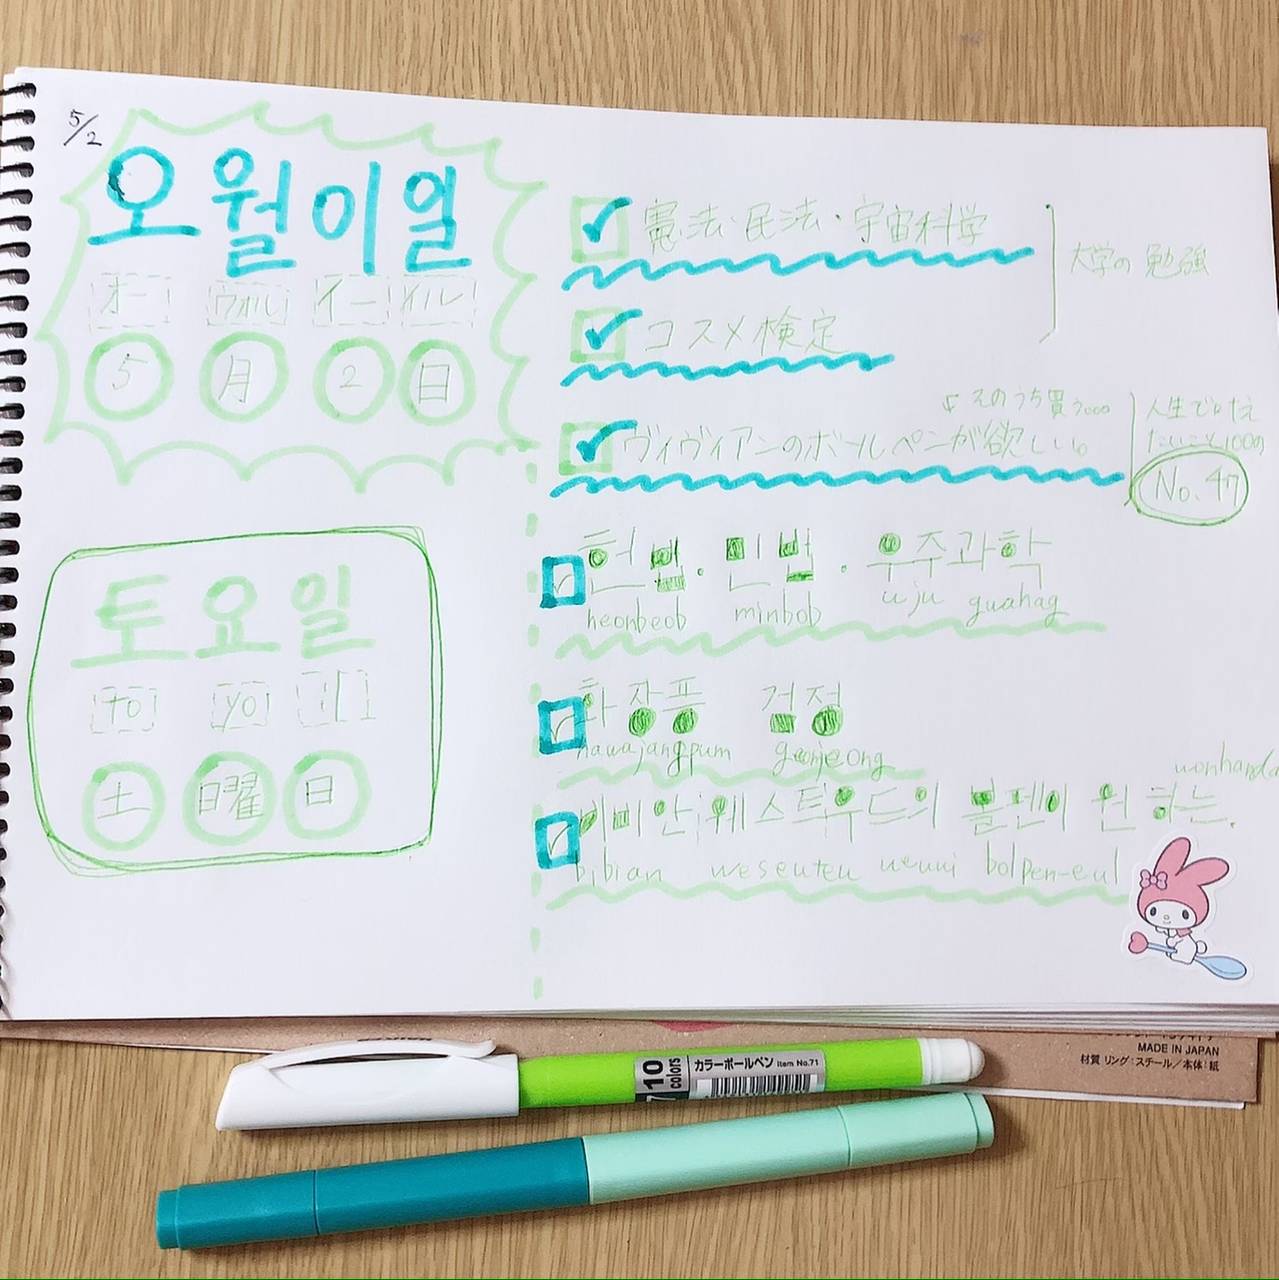 5/2
오월이일
オー ウォル イー イル
5 月 2 日
토요일
to yo il
土 曜 日
憲法・民法・宇宙科学
大学の勉強
コスメ検定
そのうち買う。。。
ヴィヴィアンのボールペンが欲しい。
人生で叶え
たいこと100の
No.47
헌법・민법・우주과학
heonbeob minbob uju guahag
화장품 검정
hawajangpum geomjeong
wonhanda
비비안 웨스트우드의 볼펜이 원하는.
bibian weseuteu bolpen-eul
710
colors
カラーボールペン Item No.71
MADE IN JAPAN
材質 リング:スチール/本体:紙